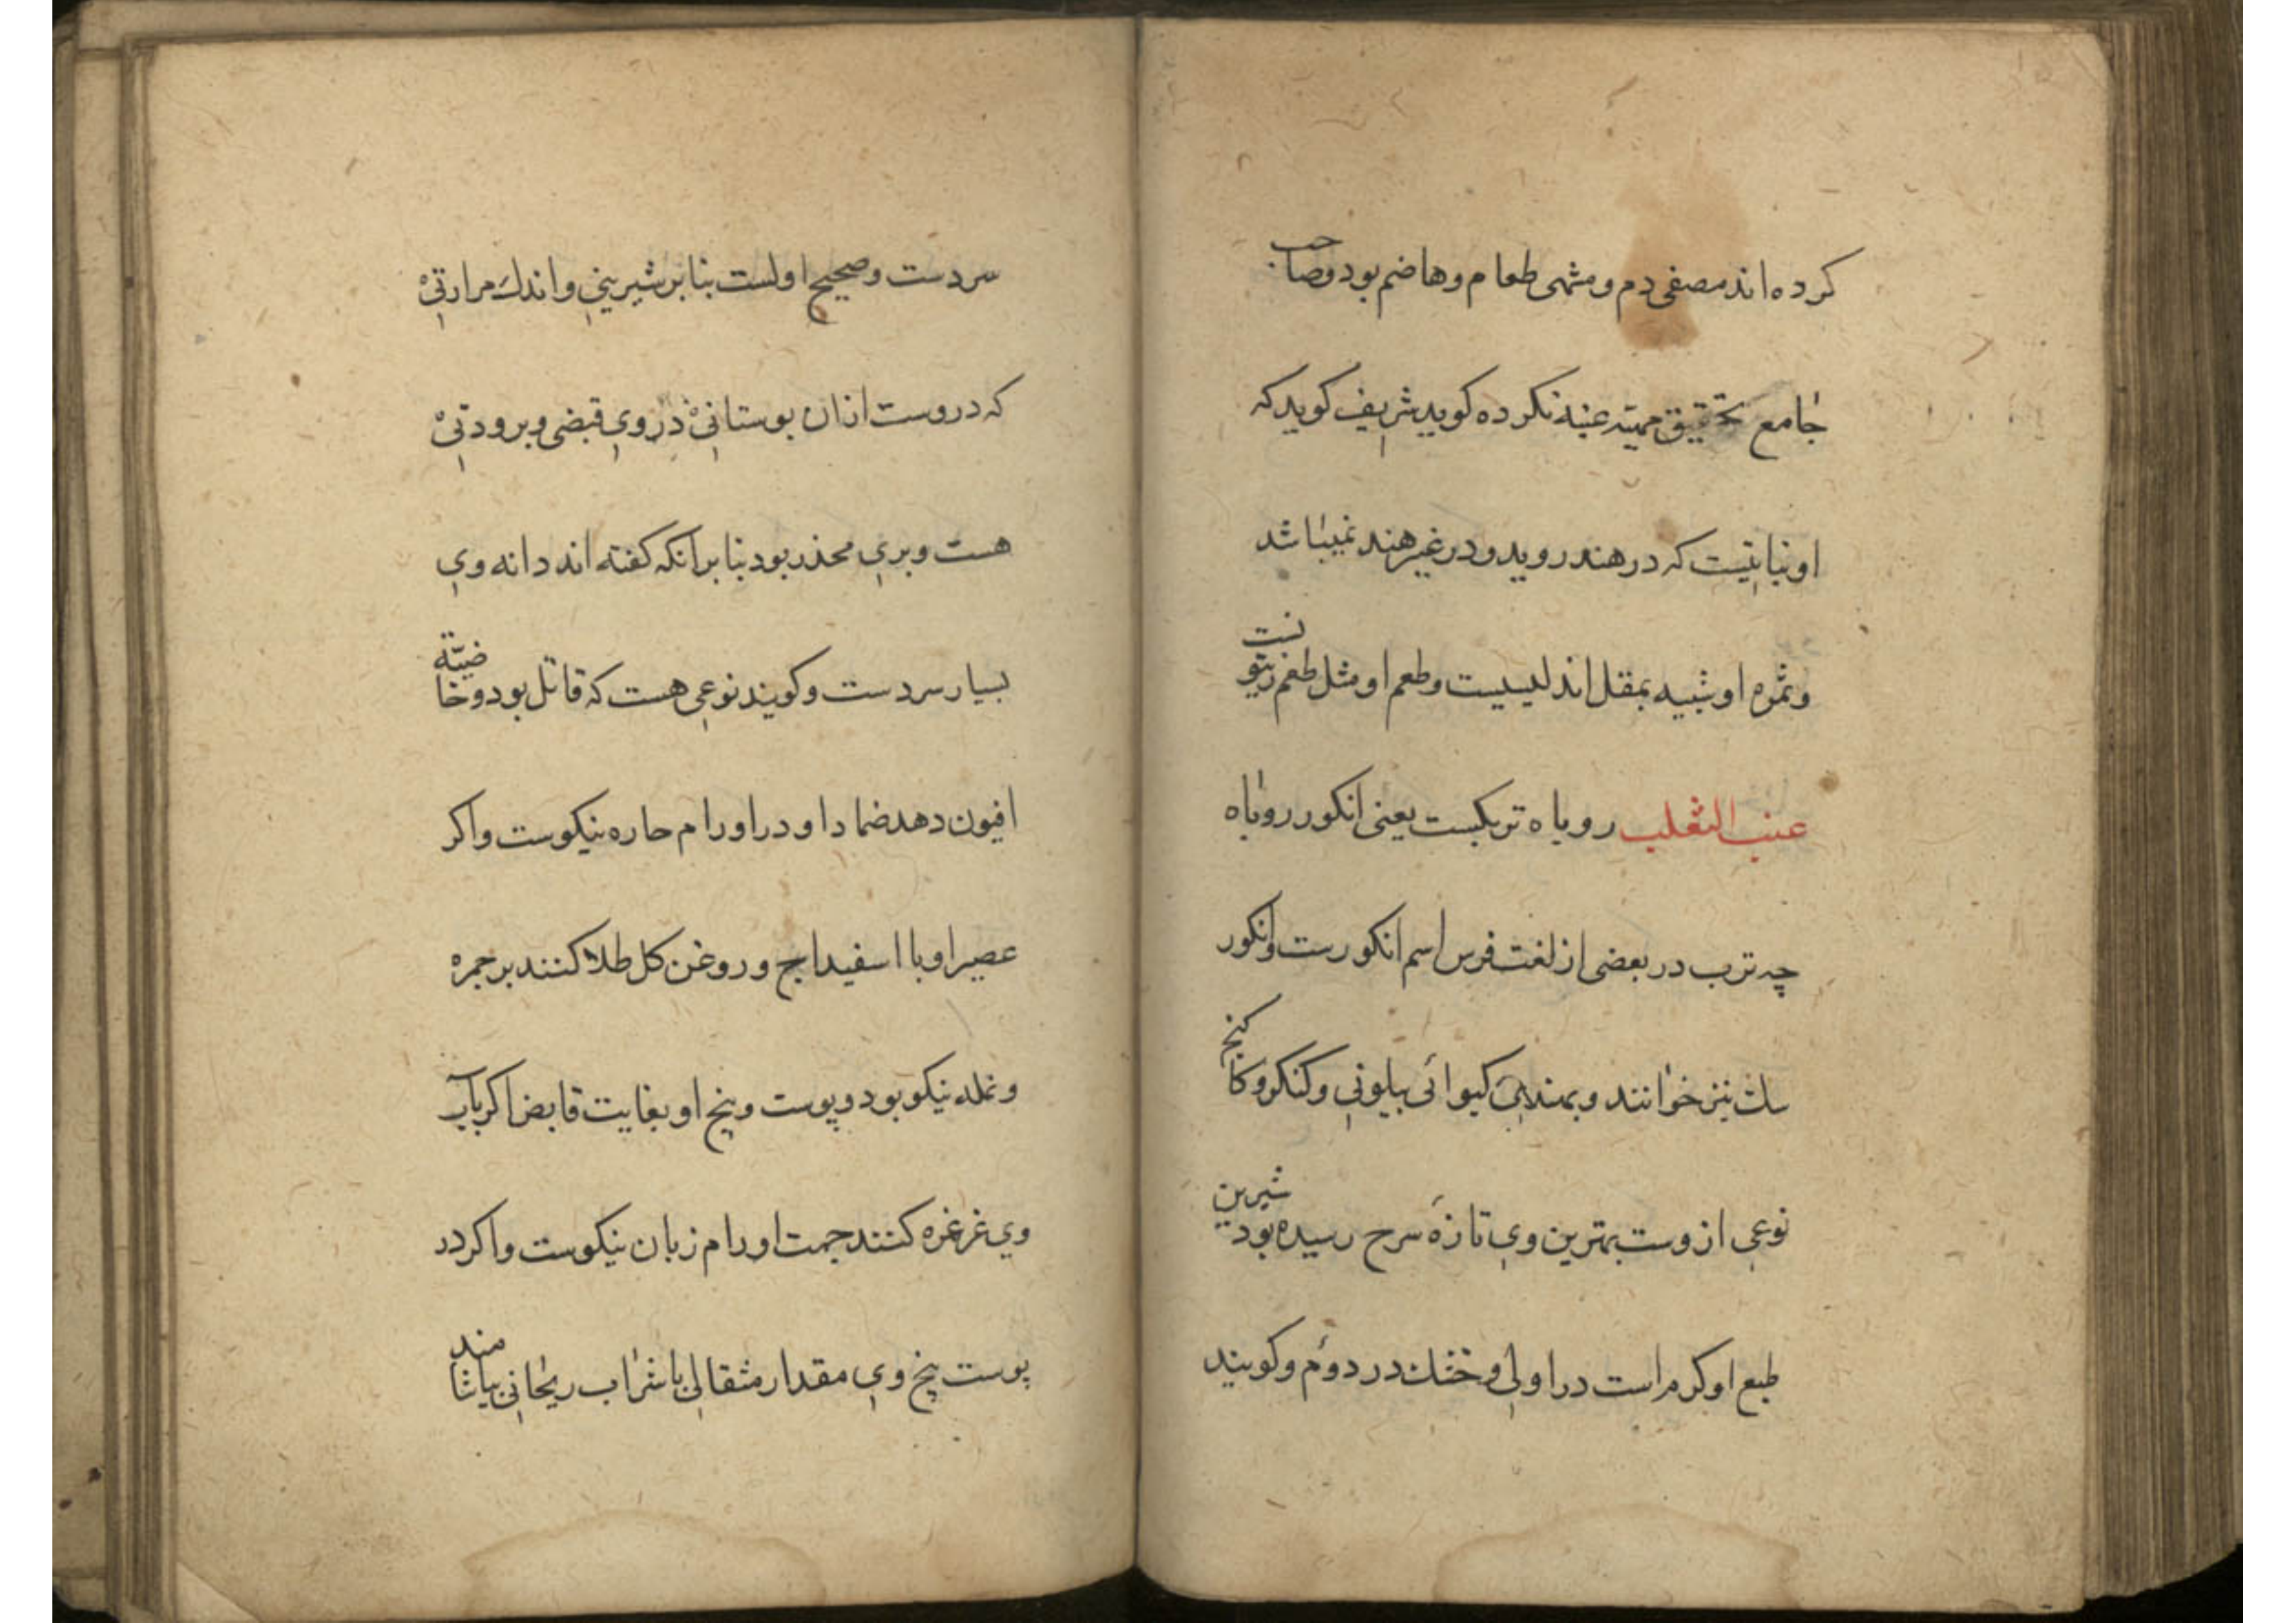 کرده‌اند مصفی دم و مشهی طعام و هاضم بود و صاحب
جامع تحقیق عنبه نکرده کوید شریف کوید که
او نباتیست که در هند روید و در غیر هند نمیباشد
و ثمره او شبیه بمقل اندلیسیست و طعم او مثل طعم زیتونست
عنب الثعلب روباه تربکست یعنی انکور روباه
چه ترب در بعضی از لغت فرس اسم انکورست و انکور
سک نیز خوانند و بهندی کیوائی بیلونی و کنکر و کاکنج
نوعی از وست بهترین وی تازه سرح رسیده شیرین بود
طبع او کرم است در اولی و خشک در دوم و کویند
سردست و صحیح اولست بنا بر شیرینی و اندک مرارتی
که دروست ازان بوستانی در وی قبضی و برودتی
هست و بری محذر بود بنا بر انکه کفته اند دانه وی
بسیار سردست و کویند نوعی هست که قاتل بود و خاضیّة
افیون دهد ضمادا و در اورام حاره نیکوست و اکر
عصیر او با اسفیداج و روغن کل طلا کنند بر جمره
و نمله نیکو بود و پوست و بیخ او بغایت قابض اکر بآب
وی غرغره کنند جهت اورام زبان نیکوست و اکر در
پوست بیخ وی مقدار مثقالی باشراب ریحانی بیاشامند